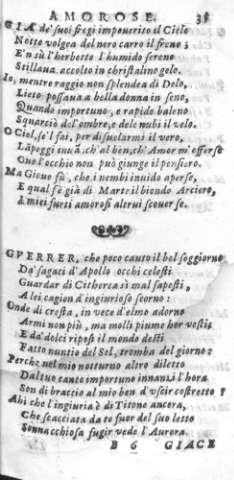 AMOROSE. 38
GIA de' suoi fregi impouerito il Cielo
Notte volgea del nero carro il freno;
E'n sù l'herbette l'humido sereno
Stillaua accolto in christalino gelo.
Io, mentre raggio non splendea di Delo,
Lieto posaua a bella donna in seno,
Quando importuno, e rapido baleno
Squarciò del'ombre, e dele nubi il velo.
O Ciel, se'l fai, per disuelarmi il vero,
Lampeggi in uā, ch'al ben, ch'Amor m'offerse
Oue l'occhio non può giunge il pensiero.
Ma Gioue fù, che i nembi inuido aperse,
E qual sè già di Marte il biondo Arciero,
A miei furti amorosi altrui scouerse.
GVERRER, che poco cauto il bel soggiorno
Da' sagaci d'Apollo occhi celesti
Guardar di Citherea sì mal sapesti,
A lei cagion d'ingiurioso scorno:
Onde di cresta, in vece d'elmo adorno
Armi non più, ma molli piume hor vesti;
E da' dolci riposi il mondo desti
Fatto nuntio del Sol, tromba del giorno:
Perche nel mio notturno altro diletto
Dal tuo canto importuno innanzi l'hora
Son di braccio al mio ben d'vscir costretto?
Ahi che l'ingiuria è di Titone ancora,
Che scacciata da te fuor del suo letto
Sonnacchiosa fugir vede l'Aurora.
B 6 GIACE